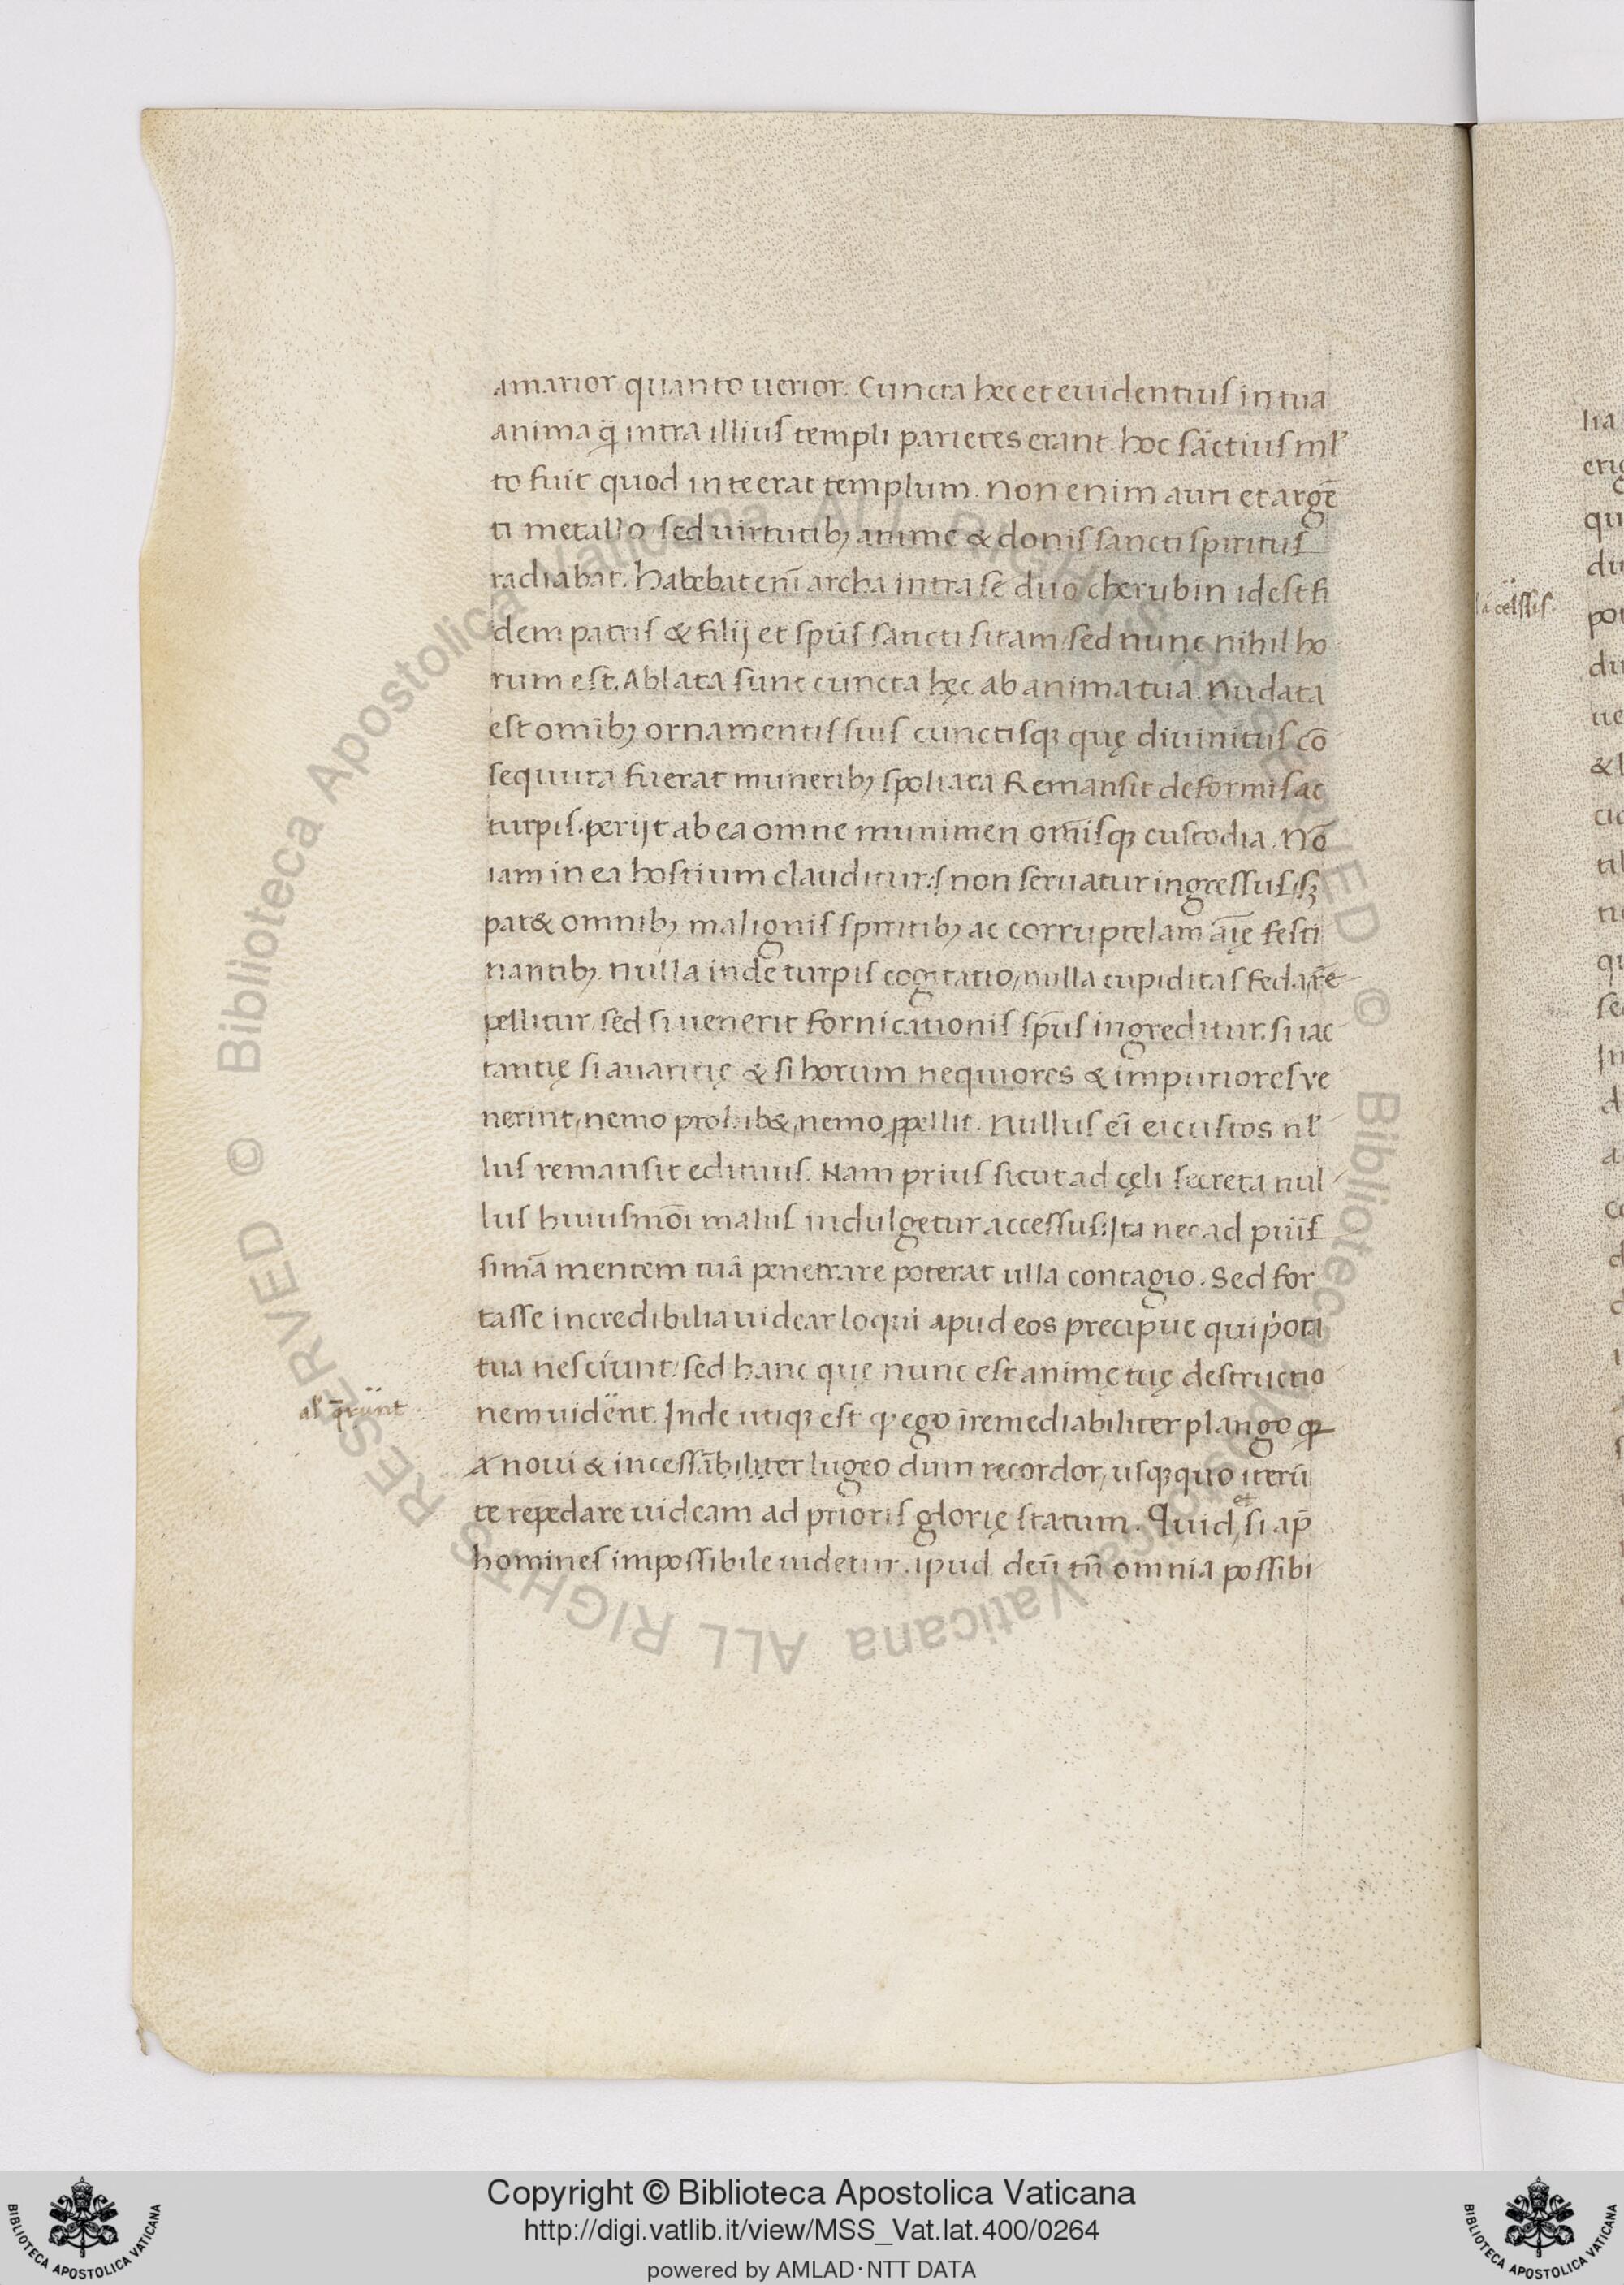 amarior quanto uerior. Cuncta hec et euidentius in tua
anima q̃ intra illius templi parietes erant. hoc sāctius ml̉
to fuit quod in te erat templum. Non enim auri et argē
ti metallo sed uirtutibꝫ anime & donis sancti spiritus
radiabat. Habebat eni̅ archa intra se duo cherubin id est fi
dem patris & filij et spūs sancti sitam sed nunc nihil ho
rum est. Ablata sunt cuncta hęc ab anima tua. Nudata
est omībꝫ ornamentis suis cunctisqꝫ quę diuinitus cō
sequuta fuerat muneribꝫ spoliata Remansit deformis ac
turpis. perijt ab ea omne munimen omīsqꝫ custodia. Nō
iam in ea hostium clauditur: non seruatur ingressus sꝫ
pat& omnibꝫ malignis spiritibꝫ ac corruptelam aīę festi
nantibꝫ. Nulla inde turpis cogitatio, nulla cupiditas feda re
pellitur, sed si uenerit fornicationis spūs ingreditur. si iac
tantię si auaritię & si horum nequiores & impuriores ve
nerint, nemo prohib&, nemo ꝓpellit. Nullus ei̅ ei custos nl̉
lus remansit edituus. Nam prius sicut ad cęli secreta nul
lus huiusmōi malus indulgetur accessus: Ita nec ad piis
simā mentem tuā penetrare poterat ulla contagio. Sed for
tasse incredibilia uidear loqui apud eos precipue qui pota
tua nesciunt, sed hanc que nunc est animę tuę destructio
al̉ q̄runt
nem uident. Inde utiqꝫ est ꝙ ego irremediabiliter plango ꝙ
a noui & incessābiliter lugeo dum recordor, usqꝫquo iterū
te repedare uideam ad prioris glorię statum. Quid et si ap̄
homines impossibile uidetur. apud deū tn̄ omnia possibi
celssis.
Copyright © Biblioteca Apostolica Vaticana
http://digi.vatlib.it/view/MSS_Vat.lat.400/0264
powered by AMLAD·NTT DATA
BIBLIOTECA APOSTOLICA VATICANA
BIBLIOTECA APOSTOLICA VATICANA
© Biblioteca Apostolica Vaticana ALL RIGHTS RESERVED © Biblioteca Apostolica Vaticana ALL RIGHTS RESERVED